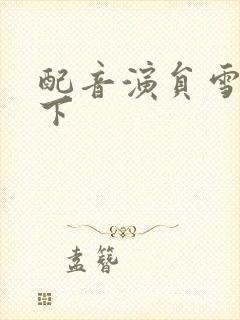 配音演員雪
下
孟簪